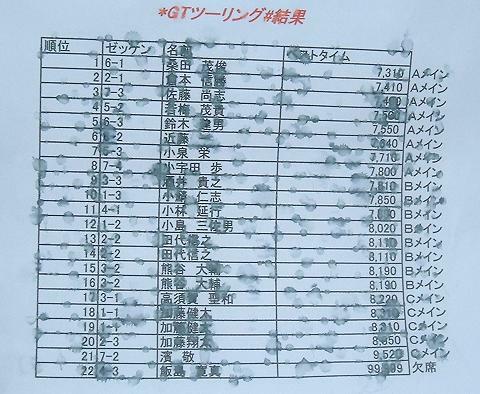 *GTツーリング#結果
順位 ゼッケン 名前 ストタイム
1 6-1 桑田 茂俊 7,310 Aメイン
2 2-1 倉本 信勝 7,410 Aメイン
3 7-3 佐藤 尚志 Aメイン
4 5-2 若梅 茂貴 Aメイン
5 6-3 鈴木 達男 7,550 Aメイン
6 近藤 Aメイン
7 小泉 栄 7,710 Aメイン
8 7-4 小宇田 歩 7,800 Aメイン
9 3-3 酒井 貴之 7,810 Bメイン
10 1-3 仁志 7,850 Bメイン
11 4-1 小林 延行 Bメイン
12 1-2 小島 三佐男 8,020 Bメイン
13 2-2 田代信之 8,110 Bメイン
14 2-2 田代信之 8,110 Bメイン
15 3-2 熊谷 大輔 8,190 Bメイン
16 3-2 熊谷 大輔 8,190 Bメイン
17 3-1 高須賀 聖和 8,220 Cメイン
18 1-1 加藤健太 8,310 Cメイン
19 1-1 加藤健太 8,310 Cメイン
20 2-3 加藤翔太 Cメイン
21 7-2 濱 敬 9,520 Cメイン
22 4-3 飯島 寛真 欠席